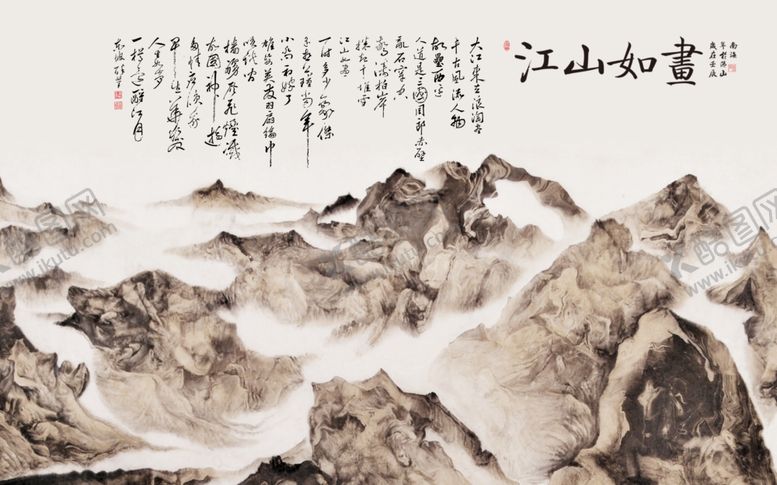 江山如畫
南海
歲在壬辰
大江東去浪淘盡
千古風流人物
故壘西邊
人道是三國周郎赤壁
亂石穿空
驚濤拍岸
捲起千堆雪
江山如畫
一時多少豪傑
遙想公瑾當年
小喬初嫁了
雄姿英發羽扇綸巾
談笑間
檣櫓灰飛煙滅
故國神遊
多情應笑我
早生華髮
人生如夢
一樽還酹江月
www.ikutu.com